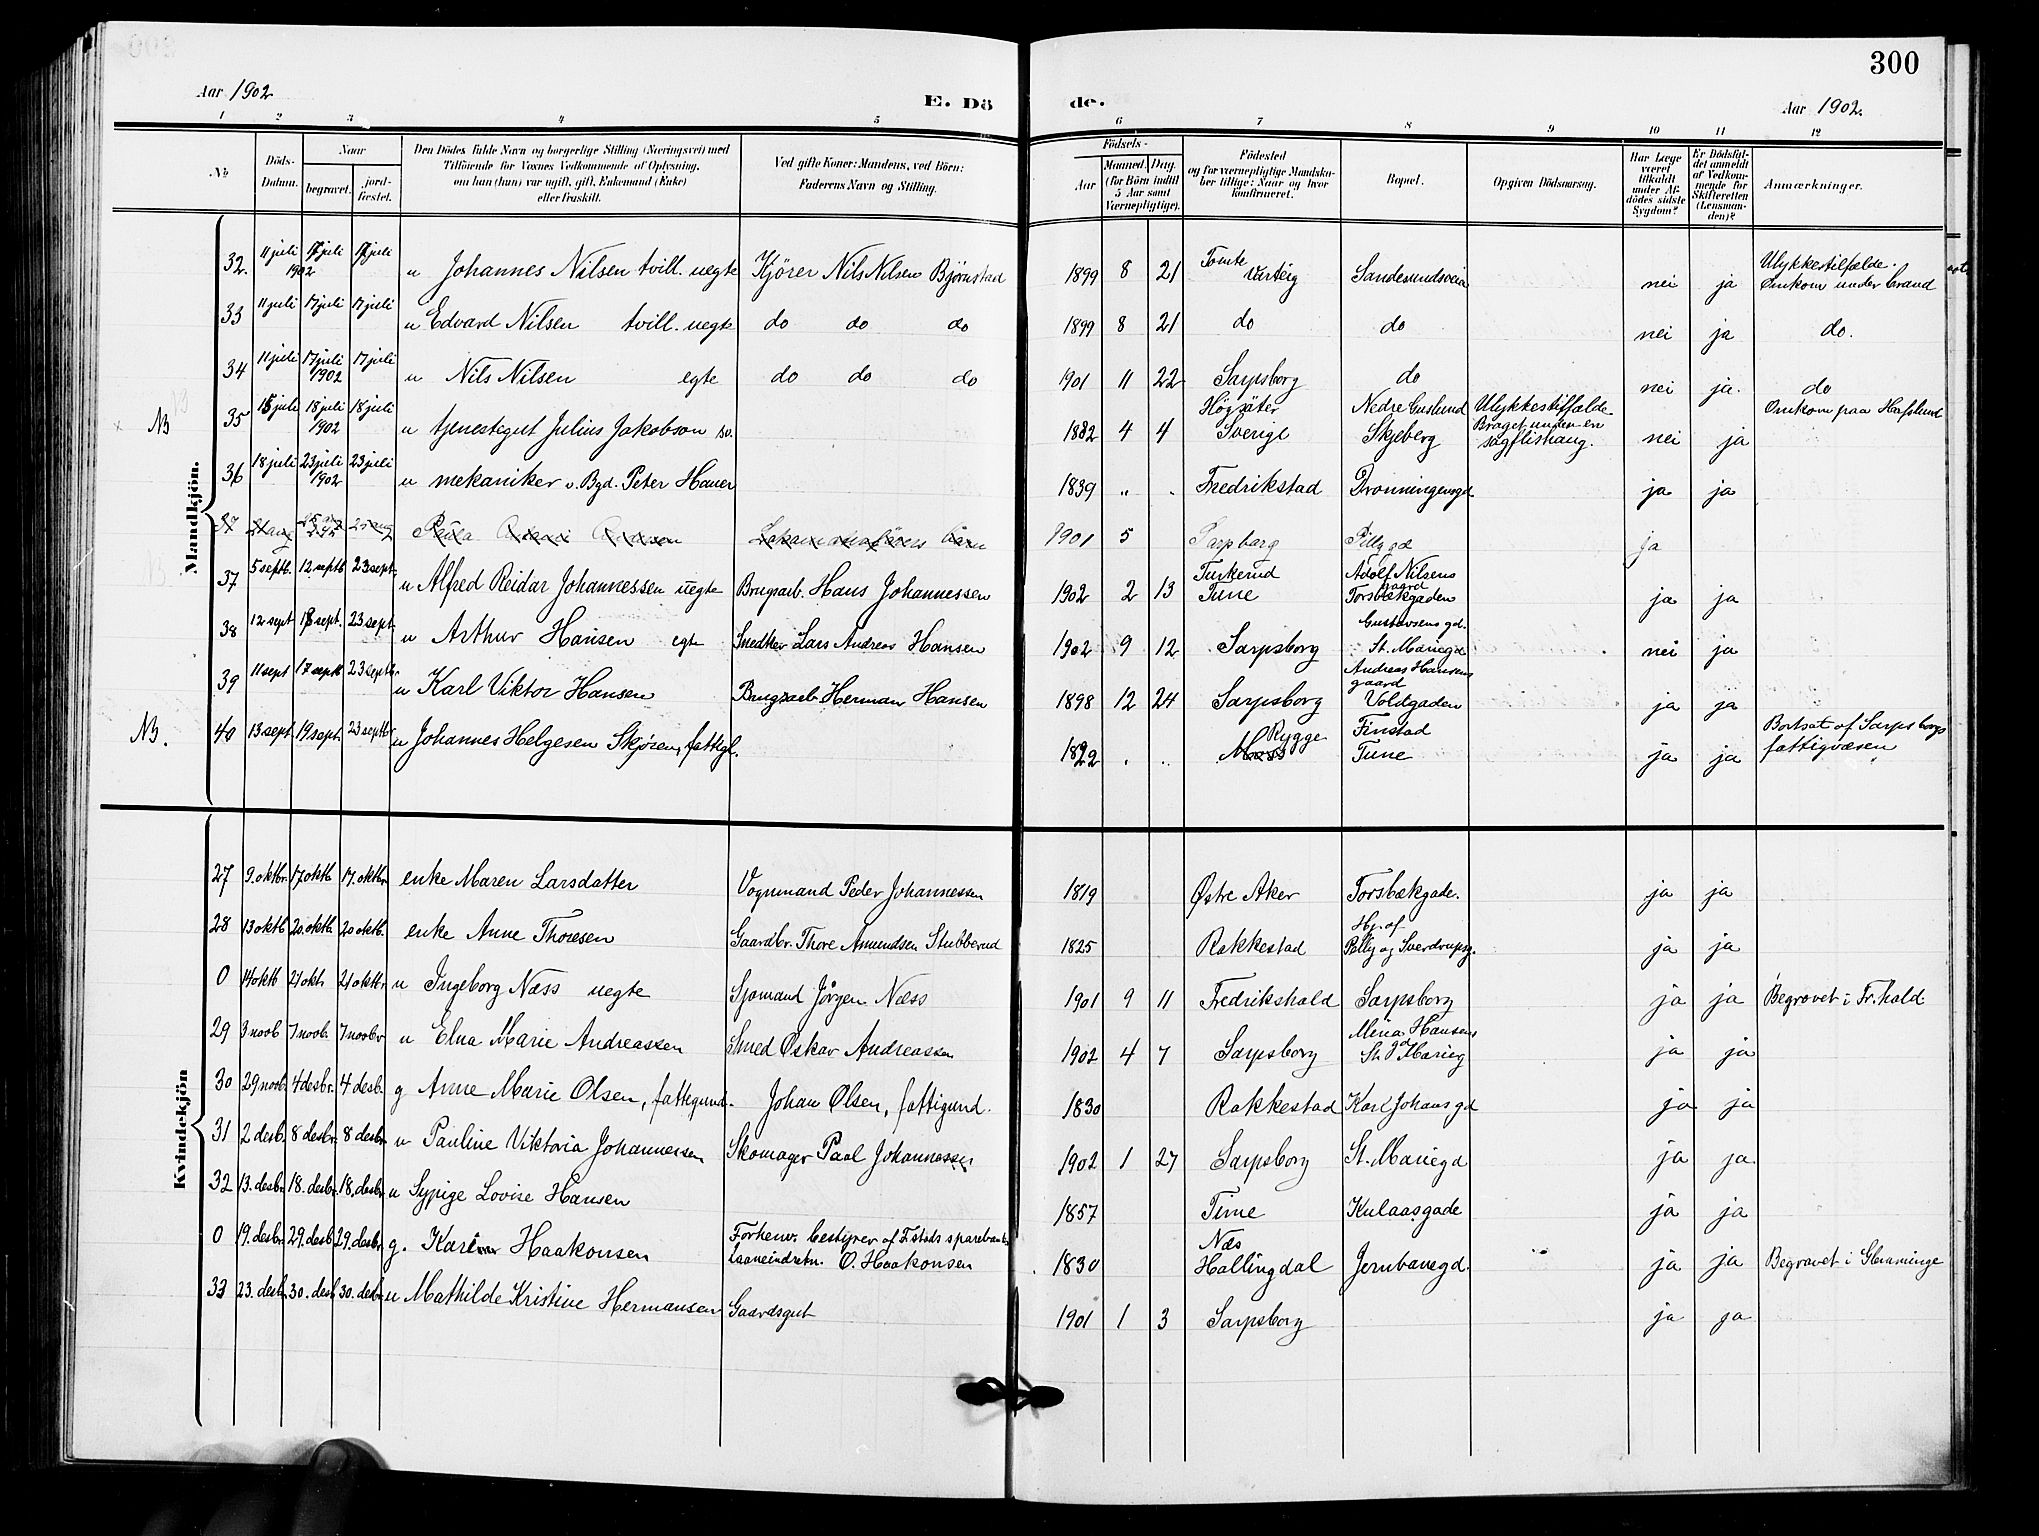 300
Aar 1902
E. Dö de.
Aar 1902.
1 2 3 4 5 6 7 8 9 10 11 12
No
Döds-Datum.
Naar
begravet.
jord-fæstet.
Den Dödes fulde Navn og borgerlige Stilling (Næringsvei) med
Tilföiende for Voxnes Vedkommende af Oplysning,
om han (hun) var ugift, gift, Enkemand (Enke)
eller fraskilt.
Ved gifte Koner: Mandens, ved Börn:
Faderens Navn og Stilling.
Födsels-
Aar
Maaned. Dag.
(for Börn indtil
5 Aar samt
Værnepligtige).
Födested
og for værnepligtige Mandska-
ber tillige: Naar og hvor
konfirmeret.
Bopæl.
Opgiven Dödsaarsag.
Har Læge
været
tilkaldt
under Af-
dödes sidste
Sygdom?
Er Dödsfal-
det anmeldt
af Vedkom-
mende for
Skifteretten
(Lensman-
den)?
Anmærkninger.
Mandkjön.
32. 11 juli 1902 17 juli 17 juli u Johannes Nilsen tvill. uegte Kjörer Nils Nilsen Björnstad 1899 8 21 Tomte Varteig Sandesundsveien nei ja Ulykkestilfælde. Omkom under brand
33 11 juli 17 juli 17 juli u Edvard Nilsen tvill. uegte do do do 1899 8 21 do do nei ja do.
34 11 juli 17 juli 1902 17 juli u Nils Nilsen egte do do do 1901 11 22 Sarpsborg do nei ja. do
NB 35 15 juli 18 juli 1902 18 juli u tjenestegut Julius Jakobson sv. 1882 4 4 Högsäter Sverige Nedre Guslund Skjeberg Ulykkestilfælde Braget under en sagflishaug. nei ja Omkom paa Hafslund
36 18 juli 23 juli 1902 23 juli u mekaniker v. Bgd. Peter Hauer 1839 " . Fredrikstad Dronningensgd ja ja
37 1901 5 Sarpsborg Pellygd ja
37 5 septb. 12. septb 23 sept. u Alfred Reidar Johannessen uegte Brugsarb. Hans Johannessen 1902 2 13 Tune Adolf Nilsens gaard Torsbækgaden ja ja
38 12 sept 18 sept. 23 sept. u Arthur Hansen egte Snedker Lars Andreas Hansen 1902 9 12 Sarpsborg Gustavsens gd. St. Mariegd nei ja
39 11 sept 17 septb 23 septbr u Karl Viktor Hansen Brugsarb Herman Hansen 1898 12 24 Sarpsborg Andreas Hansens gaard Voldgaden ja ja
NB. 40 13 sept 19 sept. 23 septbr u Johannes Helgesen Skjören, fattigl. 1822 . .. Rygge Moss Finstad Tune ja ja Bortsat af Sarpsborgs fattigvæsen
Kvindekjön
27 9. oktbr. 17. oktb 17. oktbr. enke Maren Larsdatter Vognmand Peder Johannessen 1819 Østre Aker Torsbækgade. ja ja
28 13 oktb 20. oktb. 20 oktb. enke Anne Thoresen Gaardbr. Thore Amundsen Stubberud 1825 Rakkestad Hj. af Pelly og Sverdrupsg. ja ja
0 14 oktb 21 okt. 21 oktbr. u Ingeborg Næss uegte Sjömand Jörgen Næss 1901 9 11 Fredrikshald Sarpsborg ja ja Begravet i Fr.hald.
29 3 novb 7 novb. 7 novbr u Elna Marie Andreassen Smed Oskar Andreassen 1902 4 7 Sarpsborg Mina Hansens gd St. Marieg ja ja
30 29 novb. 4 desbr. 4 desb. g Anne Marie Olsen, fattigund. Johan Olsen, fattigund. 1830 Rakkestad Karl Johans gd ja ja
31 2 desb. 8 desbr. 8 desbr. u Pauline Viktoria Johannessen Skomager Paal Johannessen 1902 1 27 Sarpsborg St. Mariegd ja ja.
32 13. desbr. 18. desbr. 18. desbr. u Sypige Lovise Hansen 1857 Tune Kulaasgade ja ja
0 19. desbr. 29. desb. 29. desbr. g. Karine Haakonsen Forhenv. bestyrer af F.stads sparebanks Laaneindretn. O. Haakonsen 1830 Næs Hallingdal Jernbanegd. ja ja Begravet i Glemminge
33 23. desb. 30. desb. 30. desbr. u Mathilde Kristine Hermansen Gaardsgut 1901 1 3 Sarpsborg ja ja